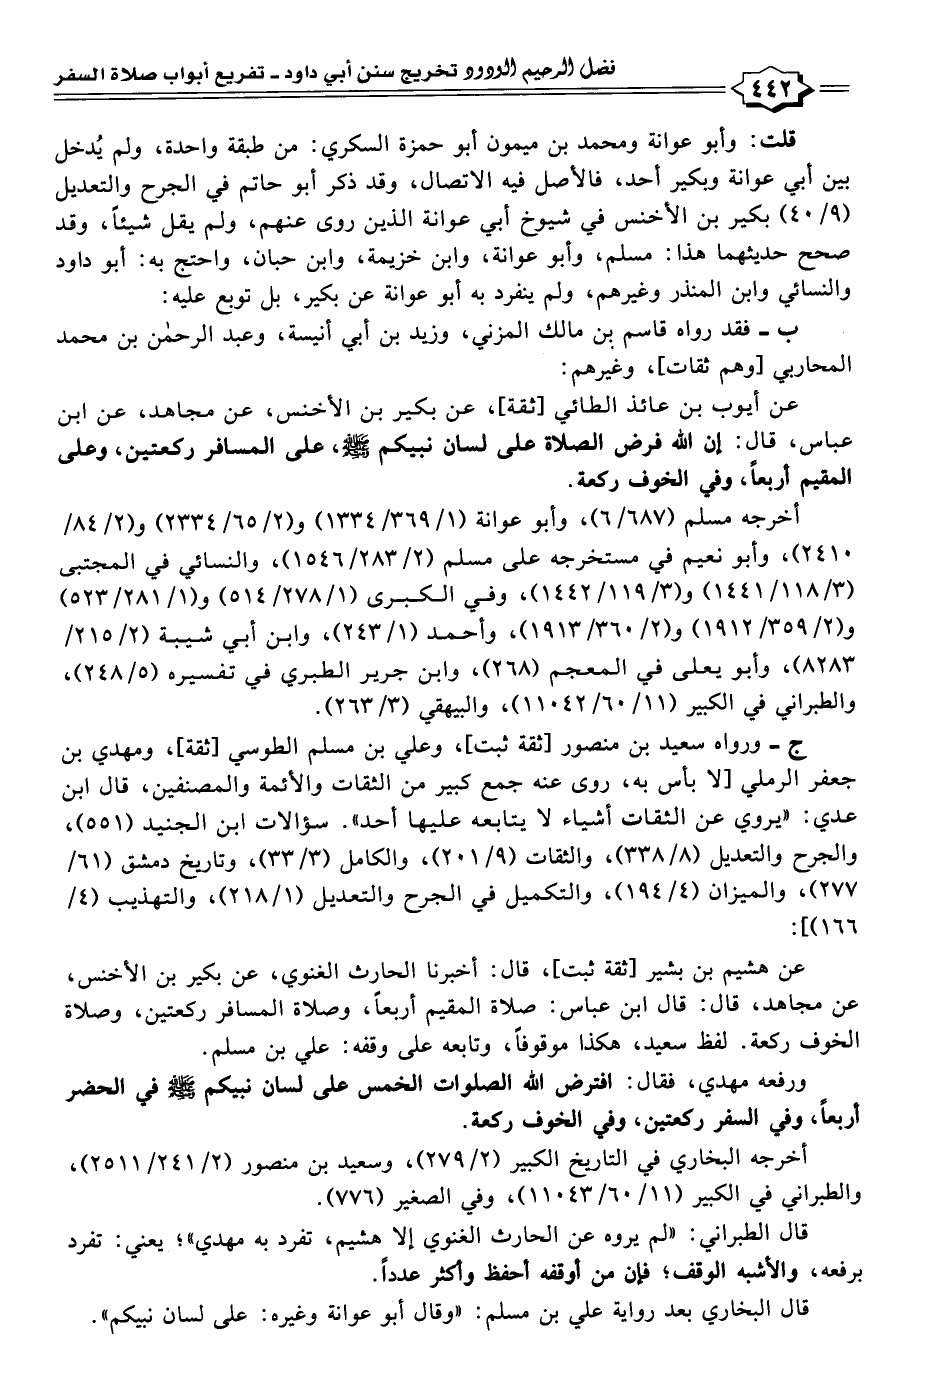 ٤٤٢ فضل الرحيم الودود تخريج سنن أبي داود ـ تفريع أبواب صلاة السفر
قلت: وأبو عوانة ومحمد بن ميمون أبو حمزة السكري: من طبقة واحدة، ولم يُدخل
بين أبي عوانة وبكير أحد، فالأصل فيه الاتصال، وقد ذكر أبو حاتم في الجرح والتعديل
(٩/ ٤٠) بكير بن الأخنس في شيوخ أبي عوانة الذين روى عنهم، ولم يقل شيئاً، وقد
صحح حديثهما هذا: مسلم، وأبو عوانة، وابن خزيمة، وابن حبان، واحتج به: أبو داود
والنسائي وابن المنذر وغيرهم، ولم ينفرد به أبو عوانة عن بكير، بل توبع عليه:
ب ـ فقد رواه قاسم بن مالك المزني، وزيد بن أبي أنيسة، وعبد الرحمٰن بن محمد
المحاربي [وهم ثقات]، وغيرهم:
عن أيوب بن عائذ الطائي [ثقة]، عن بكير بن الأخنس، عن مجاهد، عن ابن
عباس، قال: إن الله فرض الصلاة على لسان نبيكم ﷺ، على المسافر ركعتين، وعلى
المقيم أربعاً، وفي الخوف ركعة.
أخرجه مسلم (٦/٦٨٧)، وأبو عوانة (١/ ٣٦٩/ ١٣٣٤) و(٢/ ٦٥/ ٢٣٣٤) و(٢/ ٨٤/
٢٤١٠)، وأبو نعيم في مستخرجه على مسلم (٢/ ٢٨٣/ ١٥٤٦)، والنسائي في المجتبى
(٣/ ١١٨/ ١٤٤١) و(٣/ ١١٩/ ١٤٤٢)، وفي الكبرى (١/ ٢٧٨/ ٥١٤) و(١/ ٢٨١/ ٥٢٣)
و(٢/ ٣٥٩/ ١٩١٢) و(٢/ ٣٦٠/ ١٩١٣)، وأحمد (١/ ٢٤٣)، وابن أبي شيبة (٢/ ٢١٥/
٨٢٨٣)، وأبو يعلى في المعجم (٢٦٨)، وابن جرير الطبري في تفسيره (٥/ ٢٤٨)،
والطبراني في الكبير (١١/ ٦٠/ ١١٠٤٢)، والبيهقي (٣/ ٢٦٣).
ج ـ ورواه سعيد بن منصور [ثقة ثبت]، وعلي بن مسلم الطوسي [ثقة]، ومهدي بن
جعفر الرملي [لا بأس به، روى عنه جمع كبير من الثقات والأئمة والمصنفين، قال ابن
عدي: «يروي عن الثقات أشياء لا يتابعه عليها أحد». سؤالات ابن الجنيد (٥٥١)،
والجرح والتعديل (٨/ ٣٣٨)، والثقات (٩/ ٢٠١)، والكامل (٣/ ٣٣)، وتاريخ دمشق (٦١/
٢٧٧)، والميزان (٤/ ١٩٤)، والتكميل في الجرح والتعديل (١/ ٢١٨)، والتهذيب (٤/
١٦٦)]:
عن هشيم بن بشير [ثقة ثبت]، قال: أخبرنا الحارث الغنوي، عن بكير بن الأخنس،
عن مجاهد، قال: قال ابن عباس: صلاة المقيم أربعاً، وصلاة المسافر ركعتين، وصلاة
الخوف ركعة. لفظ سعيد، هكذا موقوفاً، وتابعه على وقفه: علي بن مسلم.
ورفعه مهدي، فقال: افترض الله الصلوات الخمس على لسان نبيكم ﷺ في الحضر
أربعاً، وفي السفر ركعتين، وفي الخوف ركعة.
أخرجه البخاري في التاريخ الكبير (٢/ ٢٧٩)، وسعيد بن منصور (٢/ ٢٤١/ ٢٥١١)،
والطبراني في الكبير (١١/ ٦٠/ ١١٠٤٣)، وفي الصغير (٧٧٦).
قال الطبراني: «لم يروه عن الحارث الغنوي إلا هشيم، تفرد به مهدي»؛ يعني: تفرد
برفعه، والأشبه الوقف؛ فإن من أوقفه أحفظ وأكثر عدداً.
قال البخاري بعد رواية علي بن مسلم: «وقال أبو عوانة وغيره: على لسان نبيكم».